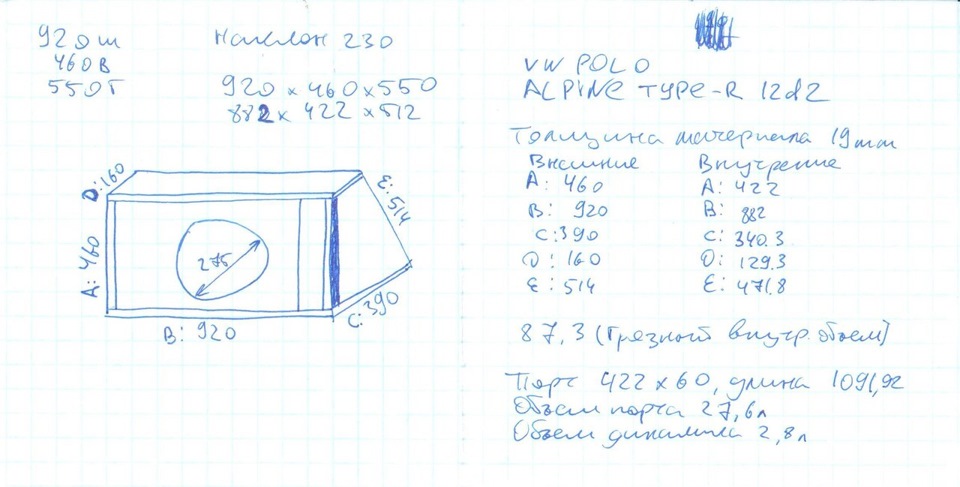 920ш
460в
550г
наклон 230
920 x 460 x 550
882 x 422 x 512
D: 160
E: 514
A: 460
275
C: 390
B: 920
VW POLO
ALPINE TYPE-R 12d2
Толщина материала 19mm
Внешние Внутрение
A: 460 A: 422
B: 920 B: 882
C: 390 C: 340.3
D: 160 D: 129.3
E: 514 E: 471.8
87,3 (Грезный внутр. объем)
Порт 422 x 60, длина 1091,92
Объем порта 27,6л
Объем динамика 2,8л